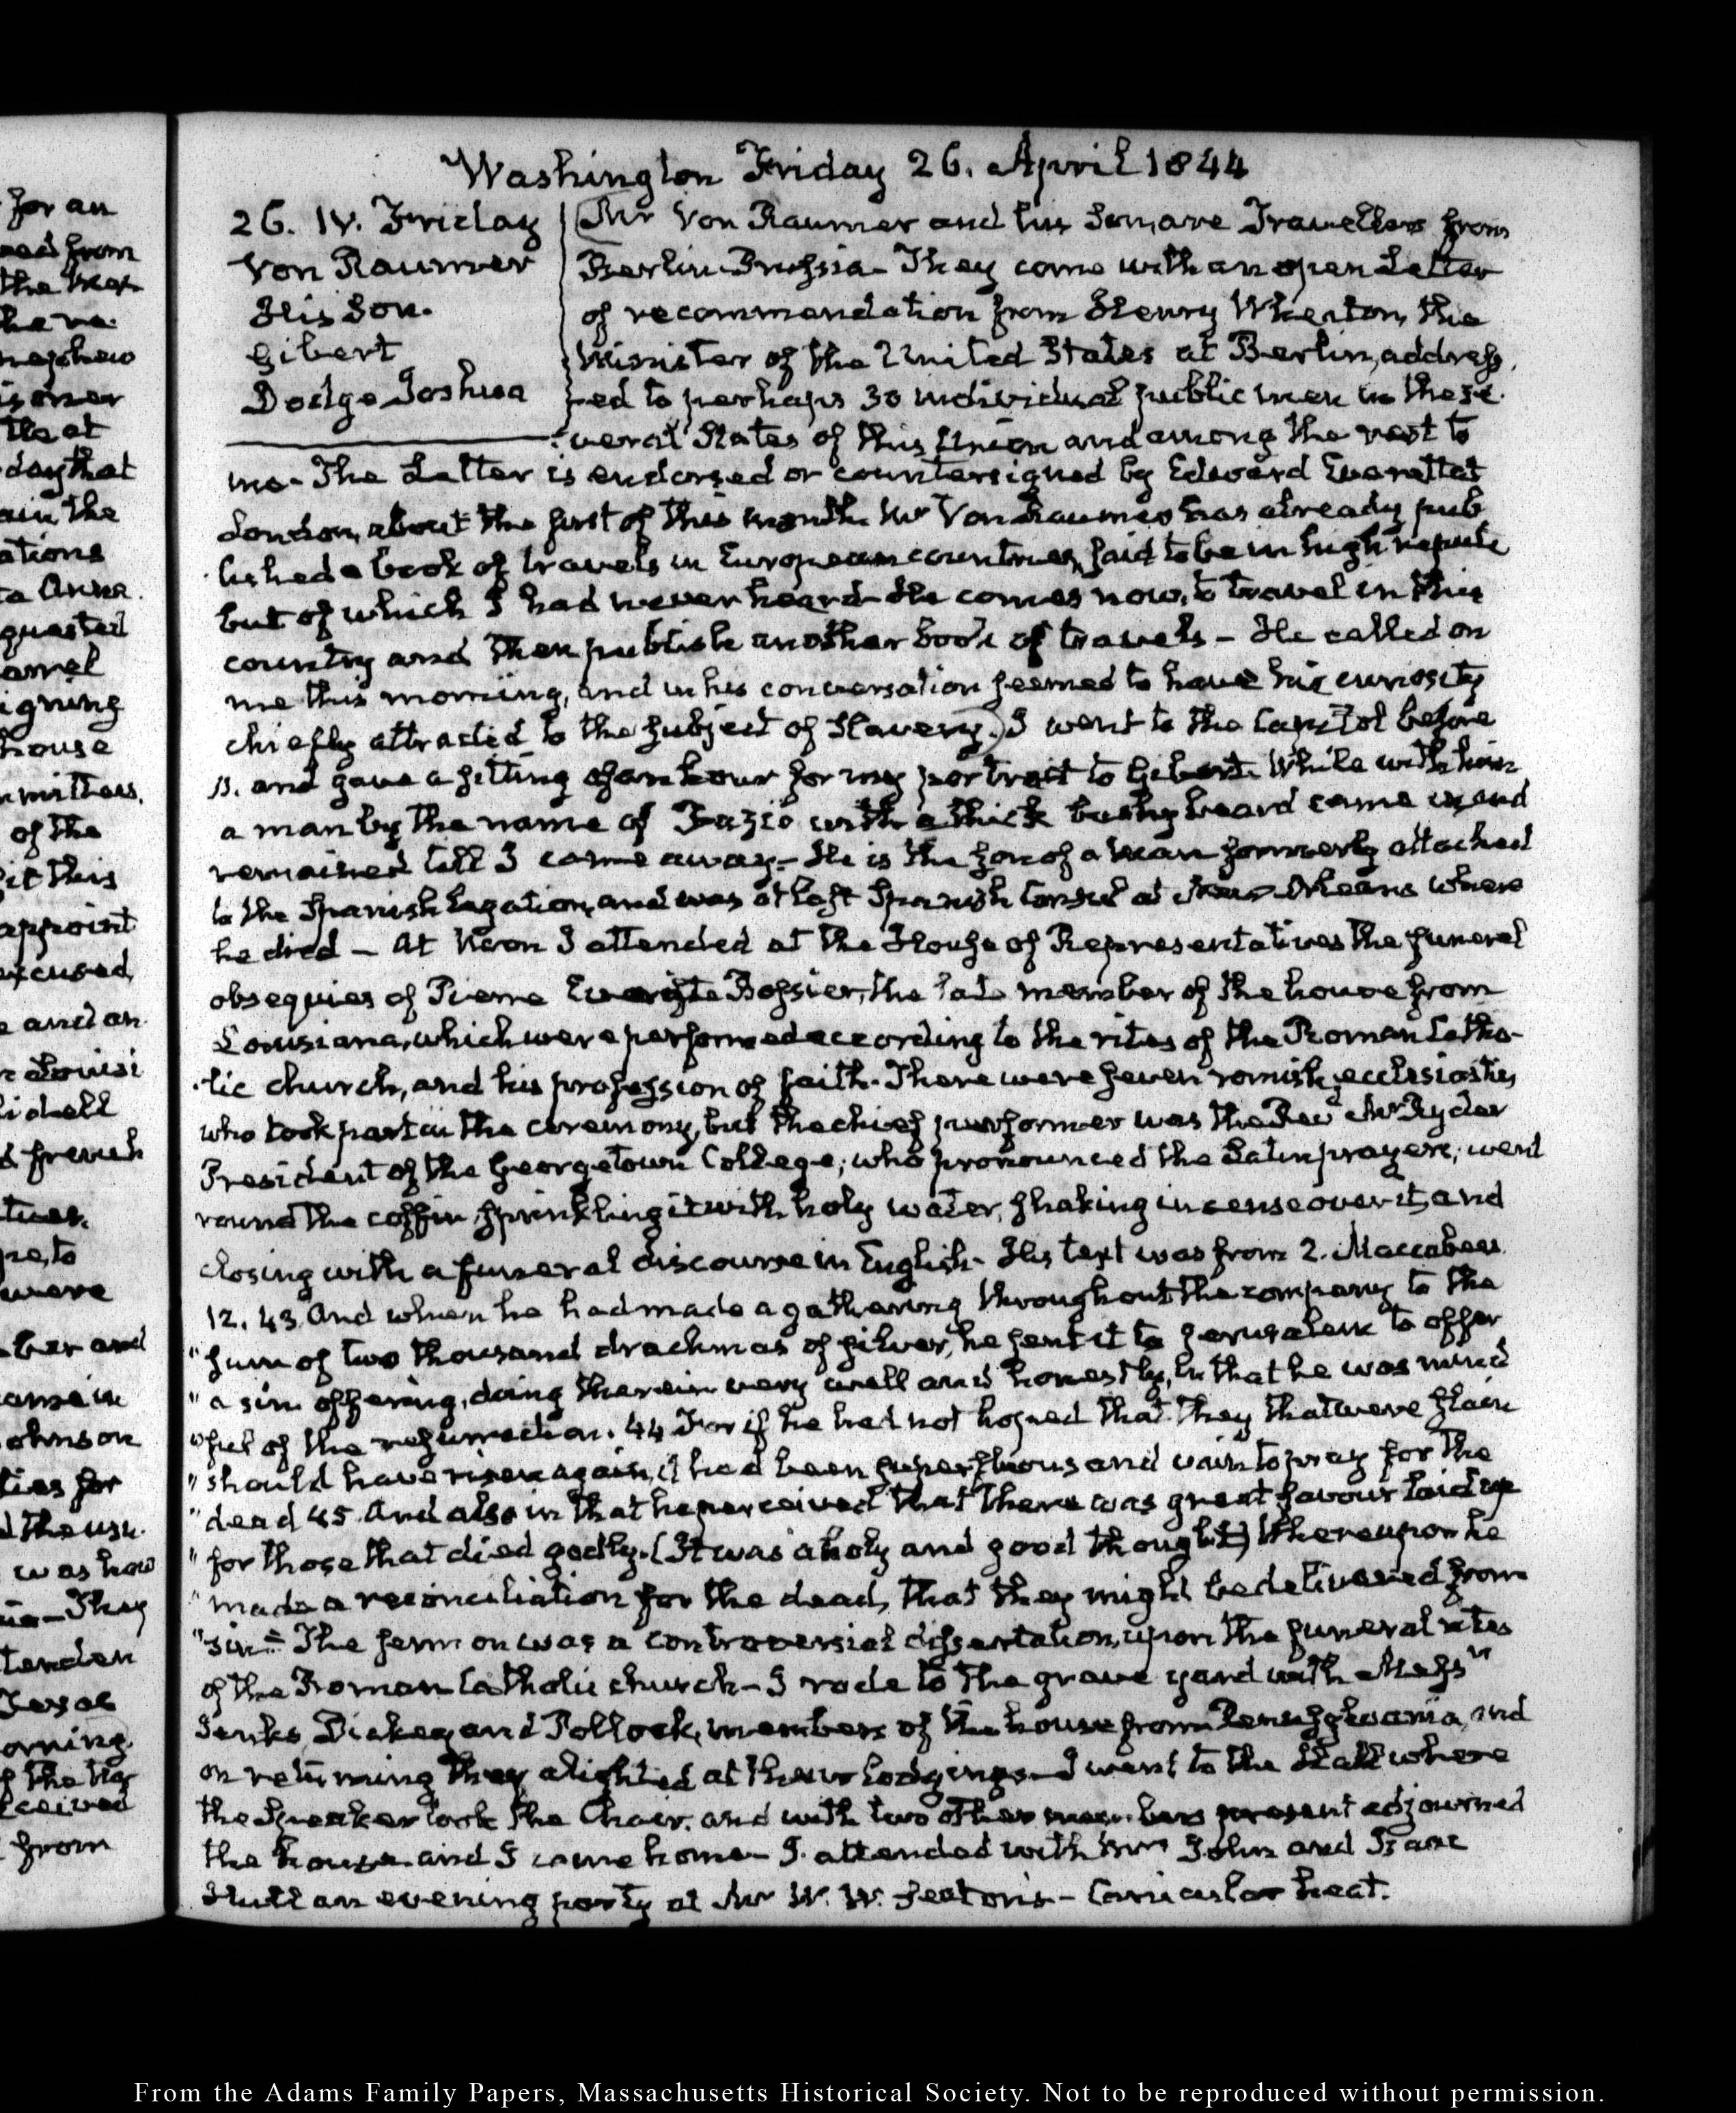 for an
from
the
nephew
tle at
day that
ain the
ations
ta Anna.
quested
igning
house
of the
it this
appoint
excused,
e and an
Louisi
lidell
french
were
ber and
ame in
ohnson
ties for
was how
They
tenden
orning
ceived
from
Washington Friday 26. April 1844
26. IV. Friday
Von Raumer
His Son.
Gibert
Dodge Joshua
Mr Von Raumer and his Son, are Travellers from
Berlin Prussia— They come with an open Letter
of recommendation from Henry Wheaton, the
Minister of the United States at Berlin, address
ed to perhaps 30 individual public men in the se
veral States of this Union and among the rest to
me— The Letter is endorsed or countersigned by Edward Everett at
London, about the first of this month. Mr Von Raumer has already pub
lished a book of travels in European countries, said to be in high repute
but of which I had never heard— He comes now, to travel in this
country and then publish another book of travels — He called on
me this morning, and in his conversation seemed to have his curiosity
chiefly attracted to the subject of Slavery.) I went to the Capitol before
11. and gave a sitting of an hour for my portrait to Gibert. While with him
a man by the name of Fazio with a thick bushy beard came in, and
remained till I came away— He is the son of a Man formerly attached
to the Spanish Legation, and was at last Spanish Consul at New-Orleans where
he died — At Noon I attended at the House of Representatives the funeral
obsequies of Pierre Evariste Bossier, the late member of the house from
Louisiana, which were performed according to the rites of the Roman Catho-
lic church, and his profession of faith. There were seven romish, ecclesiastics
who took part in the ceremony, but the chief performer was the Rev Mr Ryder
President of the Georgetown College; who pronounced the Latin prayers; went
round the coffin sprinkling it with holy water, shaking incense over it, and
closing with a funeral discourse in English— His text was from 2. Maccabees
12. 43 And when he had made a gathering throughout the company to the
"sum of two thousand drachmas of silver, he sent it to Jerusalem to offer
"a sin offering, doing therein very well and honestly, in that he was mind
"ful of the resurrection. 44 For if he had not hoped that they that were slain
"should have risen again, it had been superfluous and vain to pray for the
"dead 45 And also in that he perceived that there was great favour laid up
"for those that died godly. (It was a holy and good thought) thereupon he
"made a reconciliation for the dead, that they might be delivered from
"sin= The sermon was a controversial dissertation, upon the funeral rites
of the Roman Catholic church— I rode to the grave yard with Messrs
Jenks, Dickey and Pollock, members of the house from Pennsylvania, and
on returning they alighted at their lodgings— I went to the Hall where
the Speaker took the Chair, and with two other members present adjourned
the house and I came home— I attended with Mrs John and Isaac
Hull an evening party at Mr W. W. Seaton's — Canicular heat.
From the Adams Family Papers, Massachusetts Historical Society. Not to be reproduced without permission.